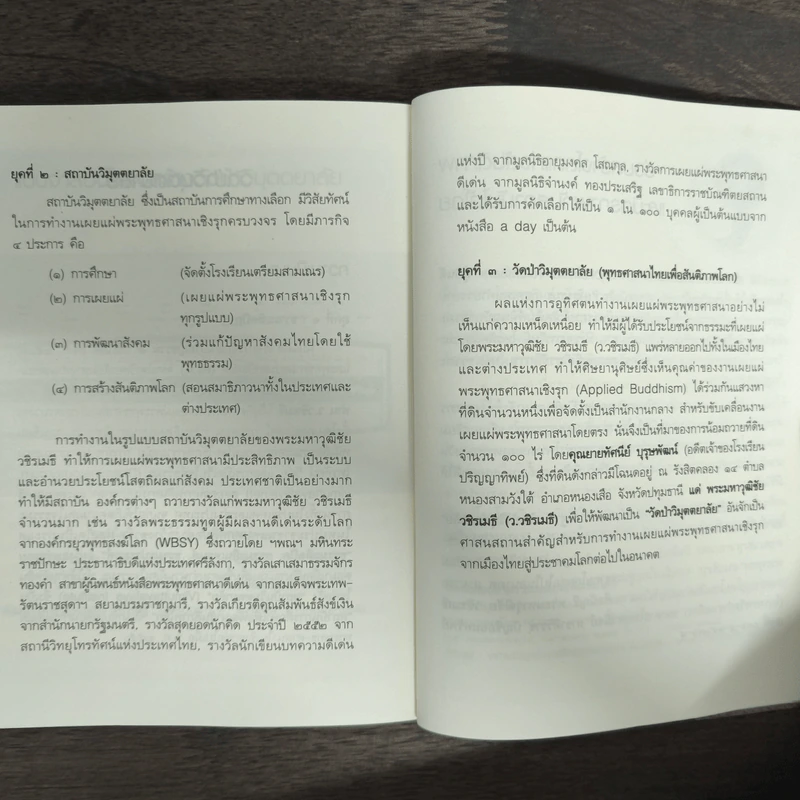 ยุคที่ ๒ : สถาบันวิมุตตยาลัย
สถาบันวิมุตตยาลัย ซึ่งเป็นสถาบันการศึกษาทางเลือก มีวิสัยทัศน์
ในการทำงานเผยแผ่พระพุทธศาสนาเชิงรุกครบวงจร โดยมีภารกิจ
๔ ประการ คือ
(๑) การศึกษา (จัดตั้งโรงเรียนเตรียมสามเณร)
(๒) การเผยแผ่ (เผยแผ่พระพุทธศาสนาเชิงรุก
ทุกรูปแบบ)
(๓) การพัฒนาสังคม (ร่วมแก้ปัญหาสังคมไทยโดยใช้
พุทธธรรม)
(๔) การสร้างสันติภาพโลก (สอนสมาธิภาวนาทั้งในประเทศและ
ต่างประเทศ)
การทำงานในรูปแบบสถาบันวิมุตตยาลัยของพระมหาวุฒิชัย
วชิรเมธี ทำให้การเผยแผ่พระพุทธศาสนามีประสิทธิภาพ เป็นระบบ
และอำนวยประโยชน์โสตถิผลแก่สังคม ประเทศชาติเป็นอย่างมาก
ทำให้มีสถาบัน องค์กรต่างๆ ถวายรางวัลแก่พระมหาวุฒิชัย วชิรเมธี
จำนวนมาก เช่น รางวัลพระธรรมทูตผู้มีผลงานดีเด่นระดับโลก
จากองค์กรยุวพุทธสงฆ์โลก (WBSY) ซึ่งถวายโดย ฯพณฯ มหินทระ
ราชปักษะ ประธานาธิบดีแห่งประเทศศรีลังกา, รางวัลเสาเสมาธรรมจักร
ทองคำ สาขาผู้นิพนธ์หนังสือพระพุทธศาสนาดีเด่น จากสมเด็จพระเทพ-
รัตนราชสุดาฯ สยามบรมราชกุมารี, รางวัลเกียรติคุณสัมพันธ์สังข์เงิน
จากสำนักนายกรัฐมนตรี, รางวัลสุดยอดนักคิด ประจำปี ๒๕๕๒ จาก
สถานีวิทยุโทรทัศน์แห่งประเทศไทย, รางวัลนักเขียนบทความดีเด่น
แห่งปี จากมูลนิธิอายุมงคล โสณกุล, รางวัลการเผยแผ่พระพุทธศาสนา
ดีเด่น จากมูลนิธิจำนงค์ ทองประเสริฐ เลขาธิการราชบัณฑิตยสถาน
และได้รับการคัดเลือกให้เป็น ๑ ใน ๑๐๐ บุคคลผู้เป็นต้นแบบจาก
หนังสือ a day เป็นต้น
ยุคที่ ๓ : วัดป่าวิมุตตยาลัย (พุทธศาสนาไทยเพื่อสันติภาพโลก)
ผลแห่งการอุทิศตนทำงานเผยแผ่พระพุทธศาสนาอย่างไม่
เห็นแก่ความเหน็ดเหนื่อย ทำให้มีผู้ได้รับประโยชน์จากธรรมะที่เผยแผ่
โดยพระมหาวุฒิชัย วชิรเมธี (ว.วชิรเมธี) แพร่หลายออกไปทั้งในเมืองไทย
และต่างประเทศ ทำให้ศิษยานุศิษย์ซึ่งเห็นคุณค่าของงานเผยแผ่
พระพุทธศาสนาเชิงรุก (Applied Buddhism) ได้ร่วมกันแสวงหา
ที่ดินจำนวนหนึ่งเพื่อจัดตั้งเป็นสำนักงานกลาง สำหรับขับเคลื่อนงาน
เผยแผ่พระพุทธศาสนาโดยตรง นั่นจึงเป็นที่มาของการน้อมถวายที่ดิน
จำนวน ๑๐๐ ไร่ โดยคุณยายทัศนีย์ บุรุษพัฒน์ (อดีตเจ้าของโรงเรียน
ปริญญาทิพย์) ซึ่งที่ดินดังกล่าวมีโฉนดอยู่ ณ รังสิตคลอง ๑๔ ตำบล
หนองสามวังใต้ อำเภอหนองเสือ จังหวัดปทุมธานี แด่ พระมหาวุฒิชัย
วชิรเมธี (ว.วชิรเมธี) เพื่อให้พัฒนาเป็น "วัดป่าวิมุตตยาลัย" อันจักเป็น
ศาสนสถานสำคัญสำหรับการทำงานเผยแผ่พระพุทธศาสนาเชิงรุก
จากเมืองไทยสู่ประชาคมโลกต่อไปในอนาคต